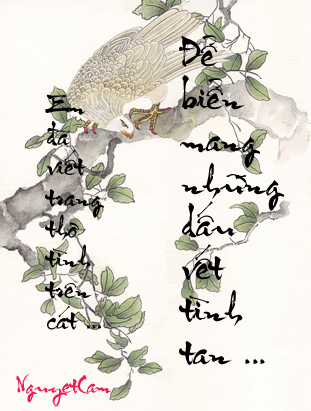 Em
đã
viết
trang
thơ
tình
trên
cát ...
Để
biển
mang
những
dấu
vết
tình
tan ...
NguyetCam